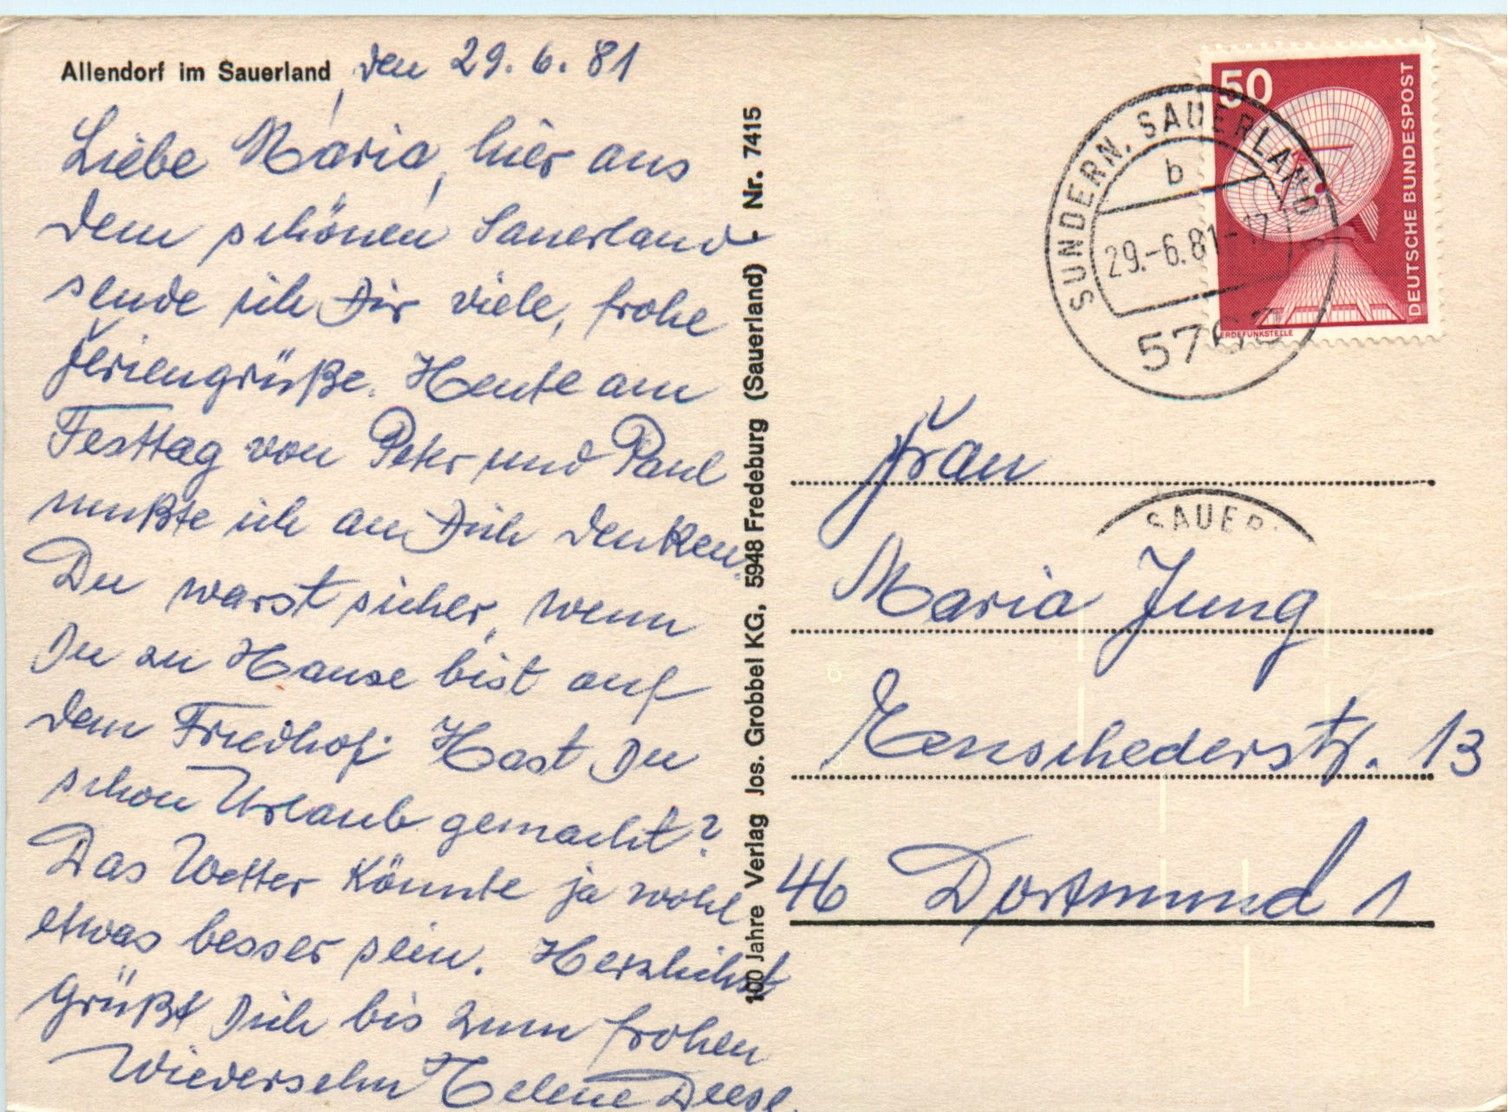 Allendorf im Sauerland, den 29.6.81
Liebe Maria, hier aus
dem schönen Sauerland
sende ich Dir viele, frohe
Feriengrüße. Heute am
Festtag von Peter und Paul
mußte ich an Dich denken.
Du warst sicher, wenn
Du zu Hause bist auf
dem Friedhof. Hast Du
schon Urlaub gemacht?
Das Wetter könnte ja wohl
etwas besser sein. Herzlichst
grüßt Dich bis zum frohen
Wiedersehn Helene
100 Jahre Verlag Jos. Grobbel KG, 5948 Fredeburg (Sauerland) - Nr. 7415
50
DEUTSCHE BUNDESPOST
ERDEFUNKSTELLE
SUNDERN, SAUERLAND
b
29.-6.81-17
576
SAUER
Frau
Maria Jung
Enschederstr. 13
46 Dortmund 1